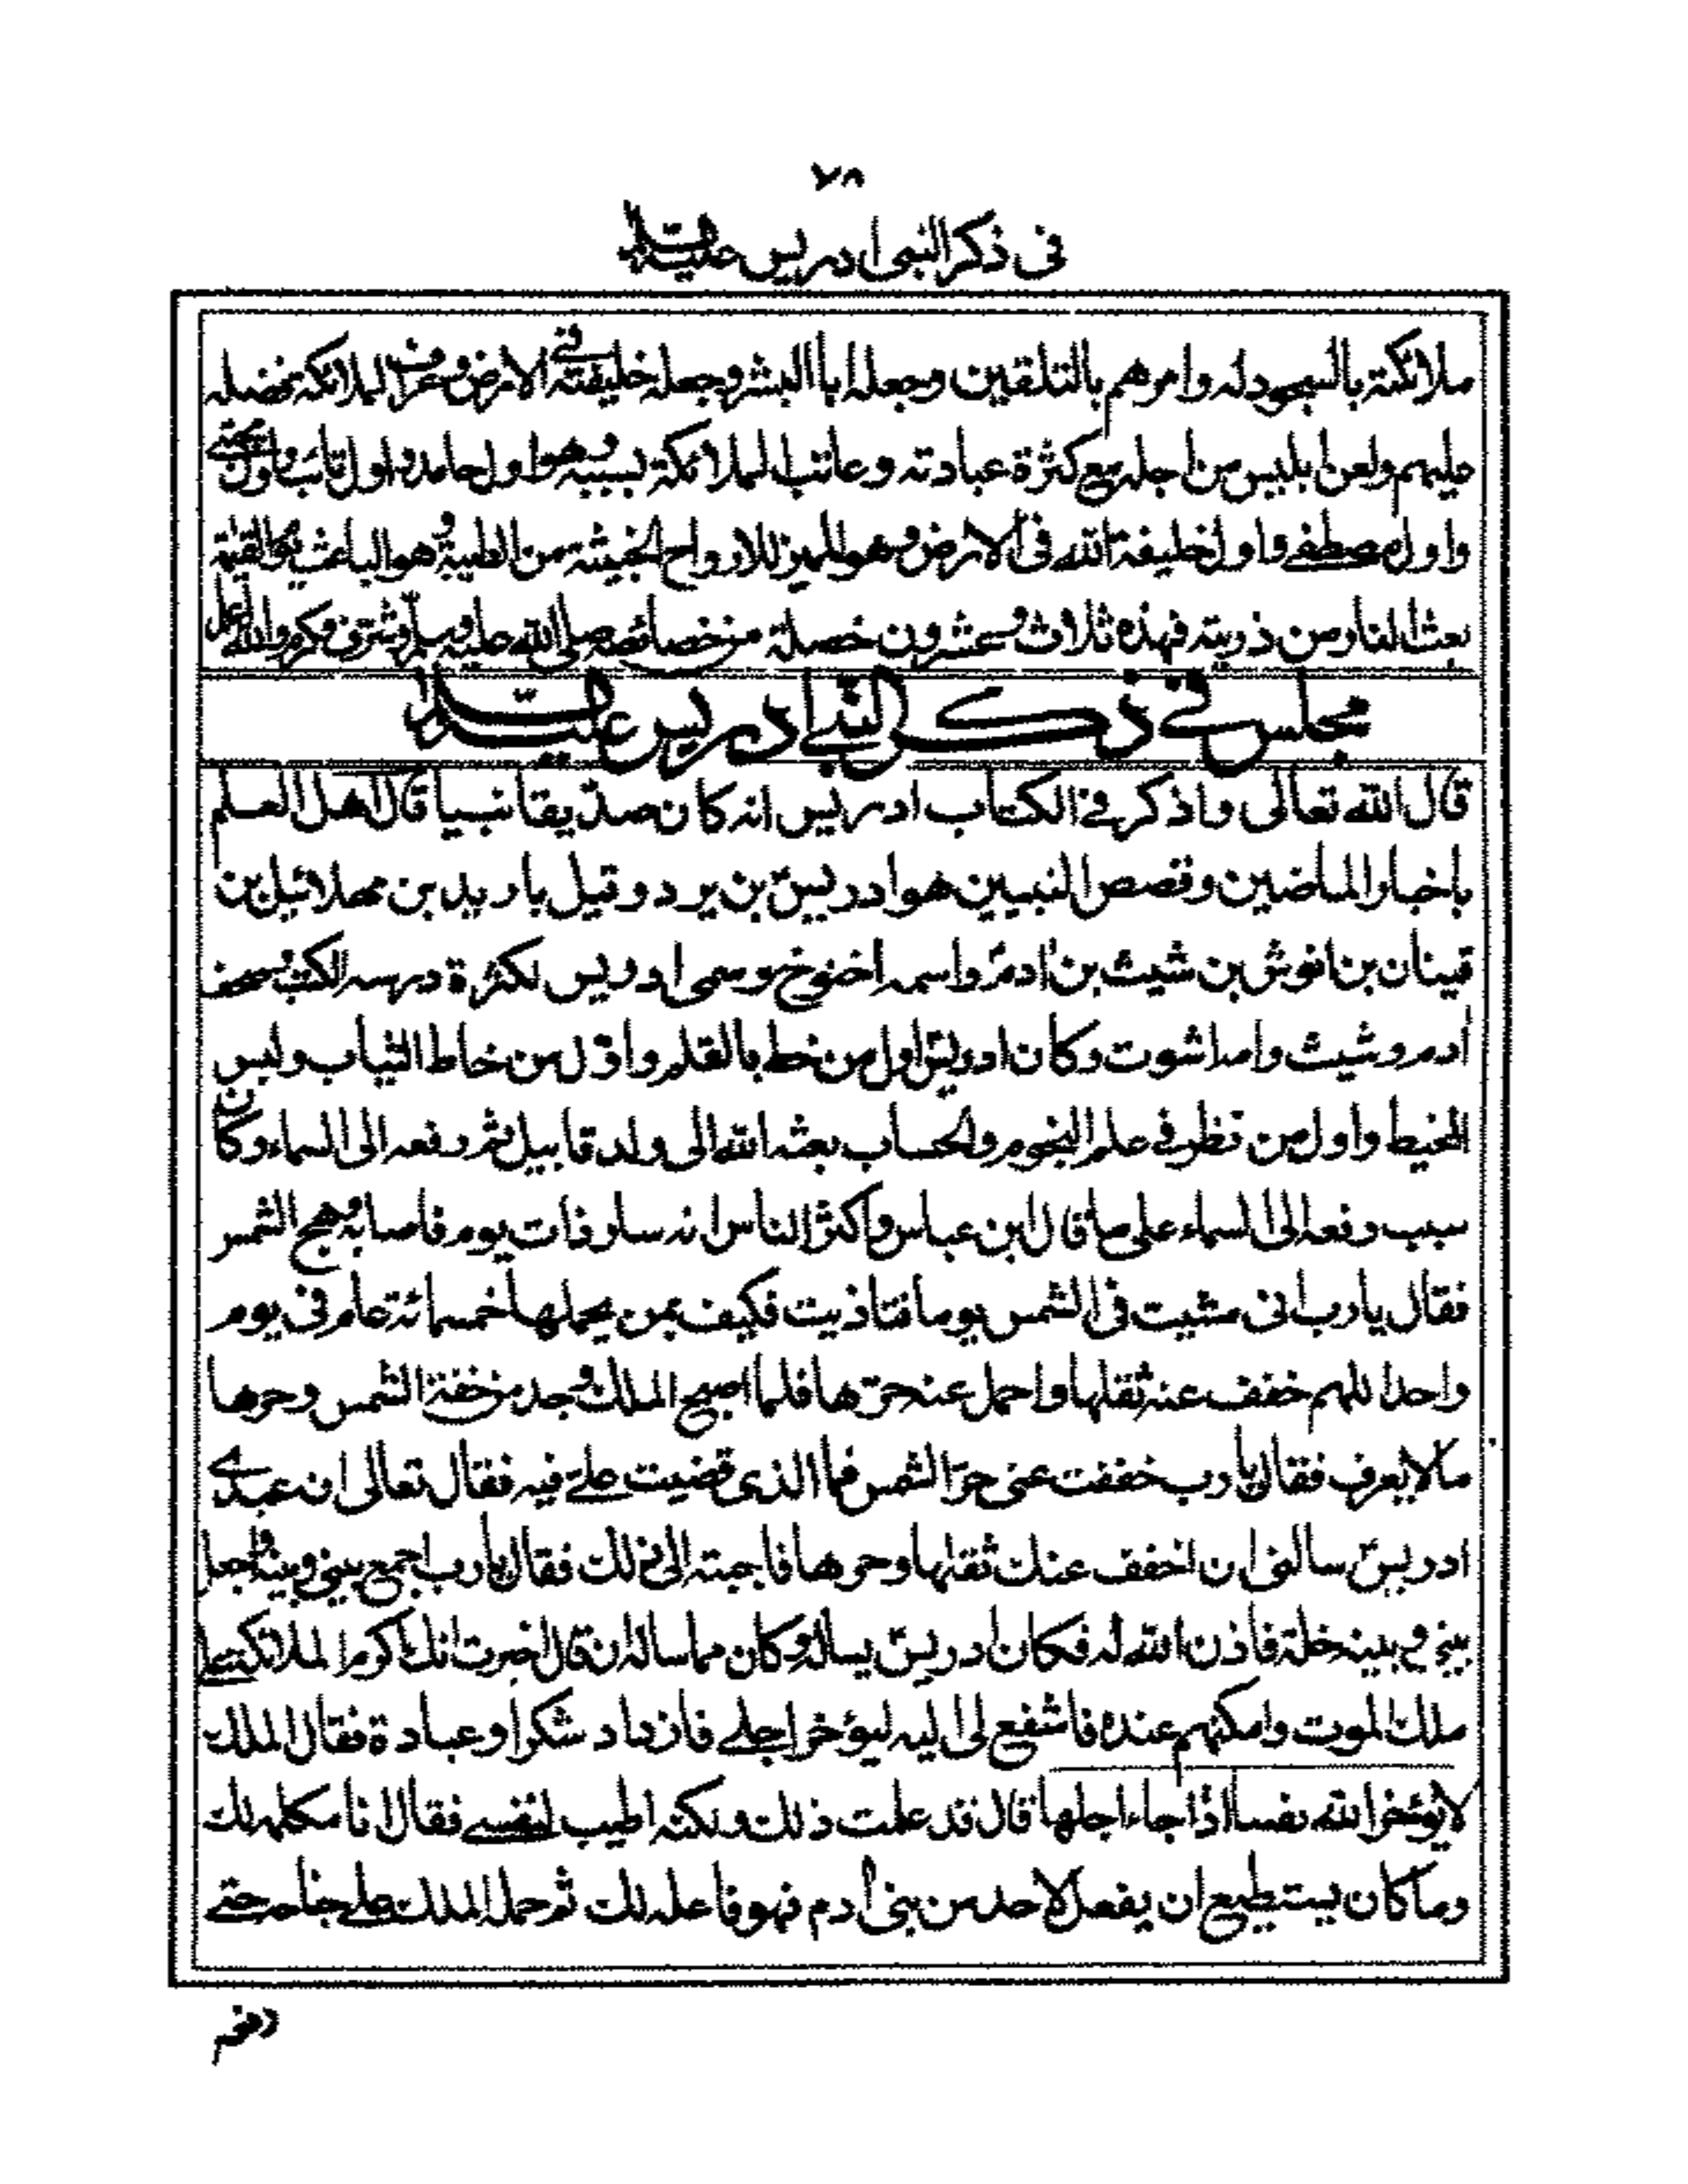 ٧٨
فى ذكر النبى ادريس عليه السلام
ملائكته بالسجود له وامرهم بالتلقين وجعله ابا البشر وجعله خليفته فى الارض وعرف الملائكة فضله
عليهم ولعن ابليس من اجله مع كثرة عبادته وعاتب الملائكة بسببه وهو اول حامد واول تائب واول مجتبى
واول مصطفى واول خليفة الله فى الارض وهو المميز للارواح الخبيثة من الطيبة وهو الباعث يوم القيمة
بعث النار من ذريته فهذه ثلاث وعشرون خصلة من خصائصه صلى الله عليه وسلم وشرف وكرم والله اعلم
مجلس فى ذكر النبى ادريس عليه السلام
قال الله تعالى واذكر فى الكتاب ادريس انه كان صدّيقا نبيا قال اهل العلم
باخبار الماضين وقصص النبيين هو ادريس بن يرد وقيل يارد بن مهلائيل بن
قينان بن انوش بن شيث بن ادم واسمه اخنوخ وسمى ادريس لكثرة درسه الكتب وصحف
أدم وشيث وامه اشوت وكان ادريس اول من خط بالقلم واوّل من خاط الثياب ولبس
المخيط واول من نظر فى علم النجوم والحساب بعثه الله الى ولد قابيل ثم رفعه الى السماء وكان
سبب رفعه الى السماء على ما قال ابن عباس واكثر الناس انه سار ذات يوم فاصابه وهج الشمس
فقال يارب انى مشيت فى الشمس يوما فتاذيت فكيف بمن يحملها خمسمائة عام فى يوم
واحد اللهم خفف عنه ثقلها واحمل عنه حرّها فلما اصبح الملك وجد من خفة الشمس وحرها
مالا يعرف فقال يارب خففت عنى حرّ الشمس فما الذى قضيت علىّ فيه فقال تعالى ان عبدى
ادريس سالنى ان اخفف عنك ثقلها وحرها فاجبته الى ذلك فقال يارب اجمع بينى وبينه واجعل
بينى وبينه خلة فاذن الله له فكان ادريس يساله وكان مما ساله ان قال اخبرت انك اكرم الملائكة على
ملك الموت وامكنهم عنده فاشفع لى اليه ليؤخر اجلى فازداد شكرا وعبادة فقال الملك
لا يؤخر الله نفسا اذا جاء اجلها قال قد علمت ذلك ولكنه اطيب لنفسى فقال انا مكلمه لك
وما كان يستطيع ان يفعل لاحد من بنى أدم فهو فاعله لك ثم حمله الملك على جناحه حتى
رفعه